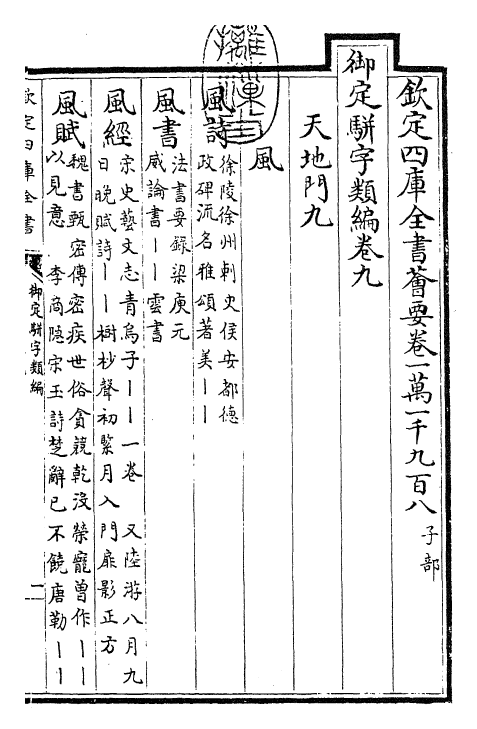 欽定四庫全書薈要卷一萬一千九百八 子部
御定駢字類編卷九
天地門九
風
風詩 徐陵徐州刺史侯安都德
政碑流名雅頌著美――
風書 法書要錄梁庾元
威論書――雲書
風經 宋史藝文志青烏子――一卷 又陸游八月九
日晚賦詩――樹杪聲初緊月入門扉影正方
風賦 魏書甄密傳密疾世俗貪競乾沒榮寵曾作――
以見意 李商隱宋玉詩楚辭已不饒唐勒――
欽定四庫全書
御定駢字類編